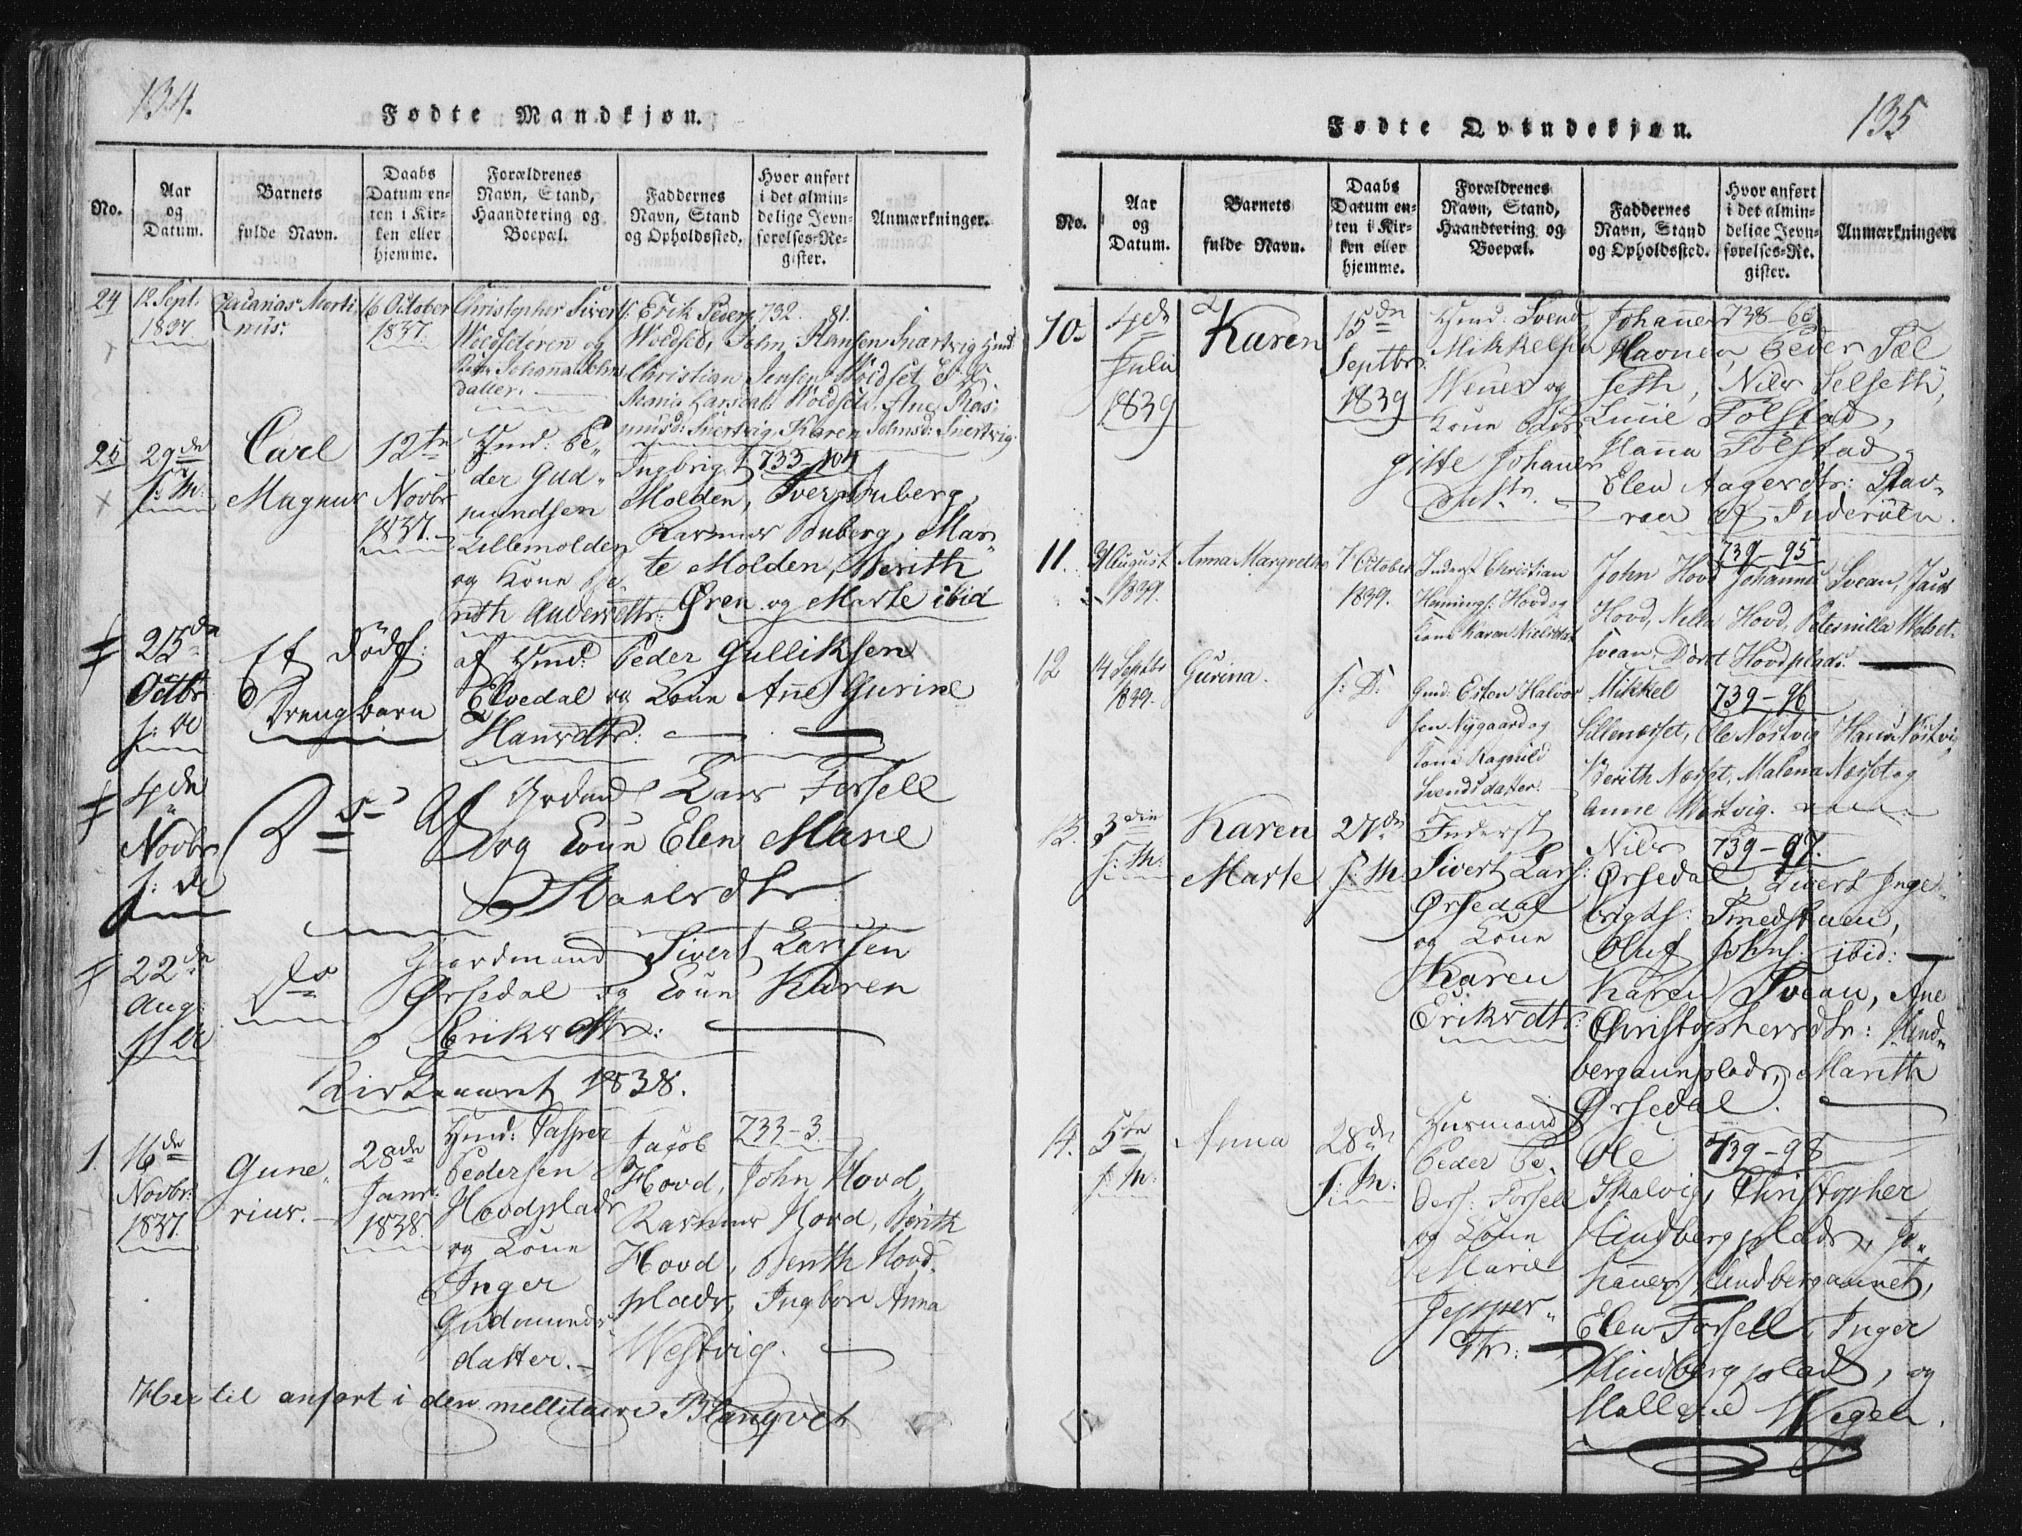 134.
Fødte Mandkjøn.
No.
Aar
og
Datum.
Barnets
fulde Navn.
Daabs
Datum en-
ten i Kir-
ken eller
hjemme.
Forældrenes
Navn, Stand,
Haandtering og
Boepæl.
Faddernes
Navn, Stand
og Opholdssted.
Hvor anført
i det almin-
delige Jevn-
førelses-Re-
gister.
Anmærkninger.
24
12 Sept.
1837
Zacarias Morti
nus.
16 October
1837.
Christopher Siver
Woldseteren og
Johana Johns
datter.
Erik Siverz
Woldset, John Hansen Snartvig
Christian Jensen Woldset
Maria Larsdt. Woldset, Ane Ras
musd: Snertvig Karen Johnsd: Snertvig
732. 81.
25
29de
f: M.
Carl
Magnus
12te
Novbr
1837.
Hmd. Pe-
der Gud-
mundsen
Lillemolden
og Kone Be
rith Andersdtr:
Ingbrigt
Molden, Iver Buberg,
Rasmus Buberg, Mar-
te Molden, Berith
Øren og Marte ibid
733-104
25de
Octbr
f: A
Et dødf:
Drengbarn
af Hmd: Peder Gulliksen
Elvedal og Kone Ane Gurine
Hansdtr:
4de
Novbr
f: A
Do
Af Grdmd Lars Forsell
og Kone Elen Marie
Staalsdtr
22de
Aug:
f: A
Do
Gaardmand Sivert Larssen
Ørsedal og Kone Karen
Eriksdttr:
Kirkeaaret 1838.
1.
16de
Novbr:
1837.
Gune-
rius.
28de
Janr:
1838.
Hmd: Jasper
Pedersen
Hovdplads
og Kone
Inger
Gudmunds
datter.
Jacob
Hovd, John Hovd,
Rasmus Hovd, Berith
Hovd, Berith Hovd-
plads, Ingbor Anna
Westvig.
733-3.
Her til anført i den mellitaire Blanqvet
135
Fødte Qvindekjøn.
No.
Aar
og
Datum.
Barnets
fulde Navn.
Daabs
Datum en-
ten i Kir-
ken eller
hjemme.
Forældrenes
Navn, Stand,
Haandtering og
Boepæl.
Faddernes
Navn, Stand
og Opholdssted.
Hvor anført
i det almin-
delige Jevn-
førelses-Re-
gister.
Anmærkninger
10.
4de
Julii
1839
Karen
15de
Septbr:
1839
Hmd: Svend
Mikkelsen
og
Kone Bir
gitte Johanes
datr.
Johannes
Havnen, Peder Sæl
seth, Nils Selseth,
Emil Folstad,
Hanna Folstad,
Elen Aagesdtr:
af Inderøen.
738-
11.
31 August
1839.
Anna Margrethe
7 October
1839.
Inderst Christian
Hemings. Hovd og
Kone Karen Nielsdat
John Hovd Johannes Svean,
Hovd, Nella Hovd, Peternilla Wolset-
svean, Doret Hovdplads.
739-95
12
14 Septbr
1839.
Gurina.
f: D:
Gmd: Esten Halvor
sen Nygaard og
Kone Ragnild
Svendsdatter.
Mikkel
Lillenesset, Ole Nostvig Hans Nostvig
Berith Nesset, Malena Nesset og
Anne Westvig.
739-96
13.
3die
f: M.
Karen
Marte
27de
f: M
Inderst
Sivert Lars:
Ørsedal
og Kone
Karen
Eriksdtr:
Nils
Ørsedal, Sivert Inge-
brigts: Smedstuen,
Oluf Johns: ibid:
Karen Svean, Ane
Christophersdtr: Hind-
bergaunplads, Marith
Ørsedal.
739-97.
14.
5te
f: M:
Anna
28de
f: M:
Husmand
Peder Pe-
ders: Forsell
og Kone
Marie
Jesper-
dtr:
Ole
Malvig, Christopher
Hindbergplads, Jo-
hannes Hindbergaunet,
Elen Forsell, Inger
Hindbergplads, og
Mallene Wegen.
739-98